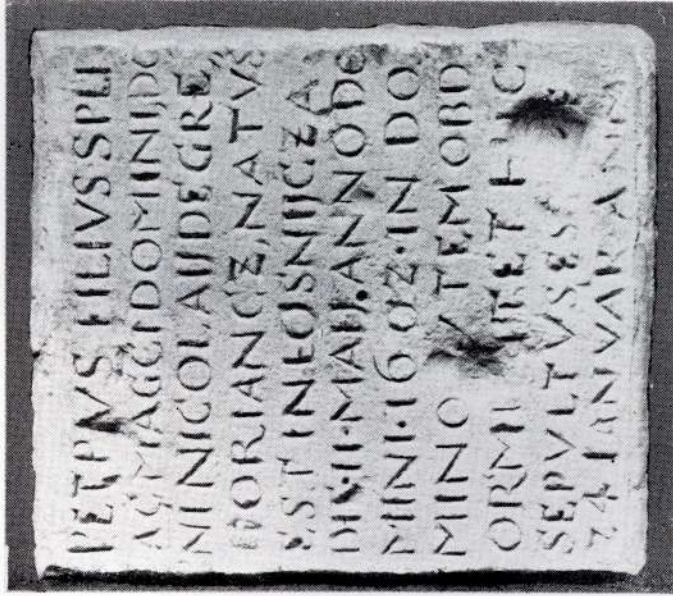 PETRVS FILIVS SPLI
AC MAGCI DOMINI, DO
NI NICOLAII DE GRE,
BORIANCZ, NATVS
EST IN LOSNIJCZ A
DIE·II·MAII·ANNO DO
MINI·160Z·IN DO
MINO TEM OBD
ORMI ET HIC
SEPVLTVS ES
Z4 IANVAR